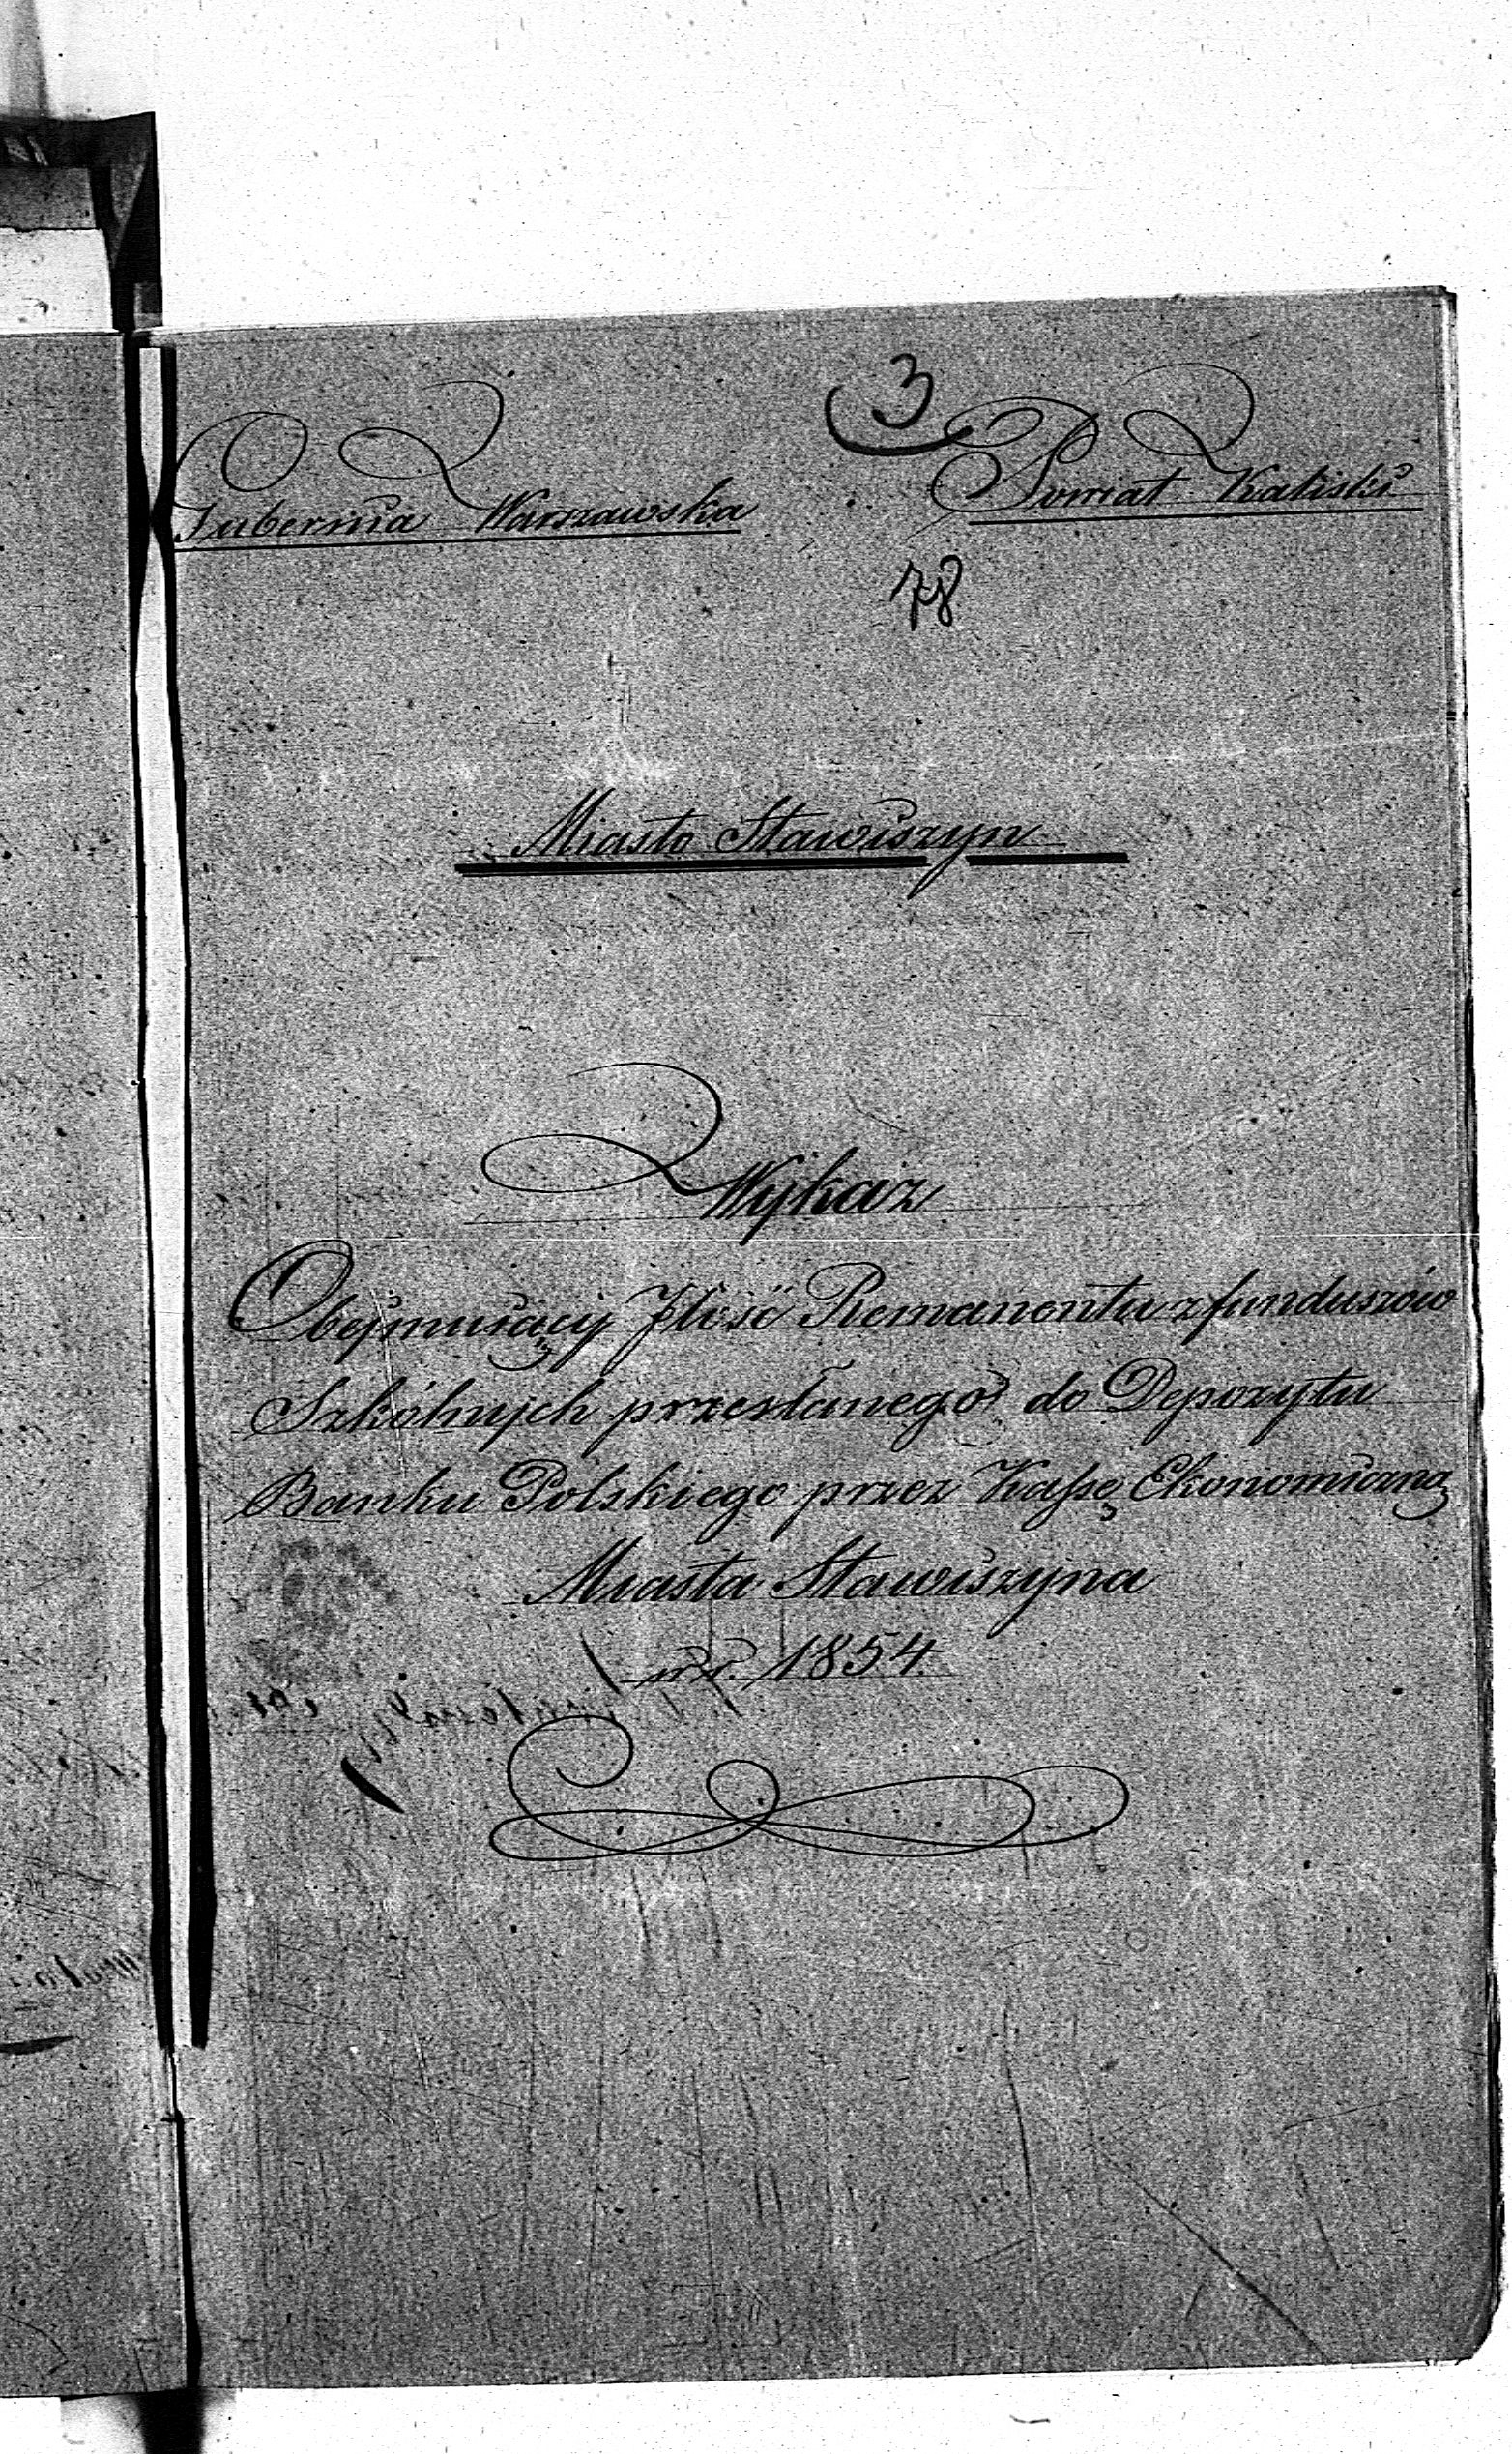 3
Gubernia Warszawska Powiat Kaliski
78
Miasto Stawiszyn
Wykaz
Obejmuiący Jlość Remanentu z funduszów
Szkólnych przesłanego do Depozytu
Banku Polskiego przez Kassę Ekonomiczną
Miasta Stawiszyna
w r. 1854.